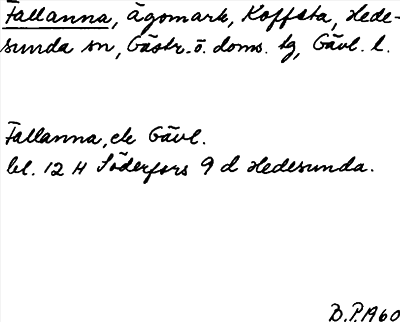 Fallanna, Ägomark, Koffsta, Hede-
sunda sn, Gästr. ö. doms. tg, Gävl. l.
Fallanna, ek Gävl.
bl. 12 H Söderfors 9 d Hedesunda.
B.P. 1960